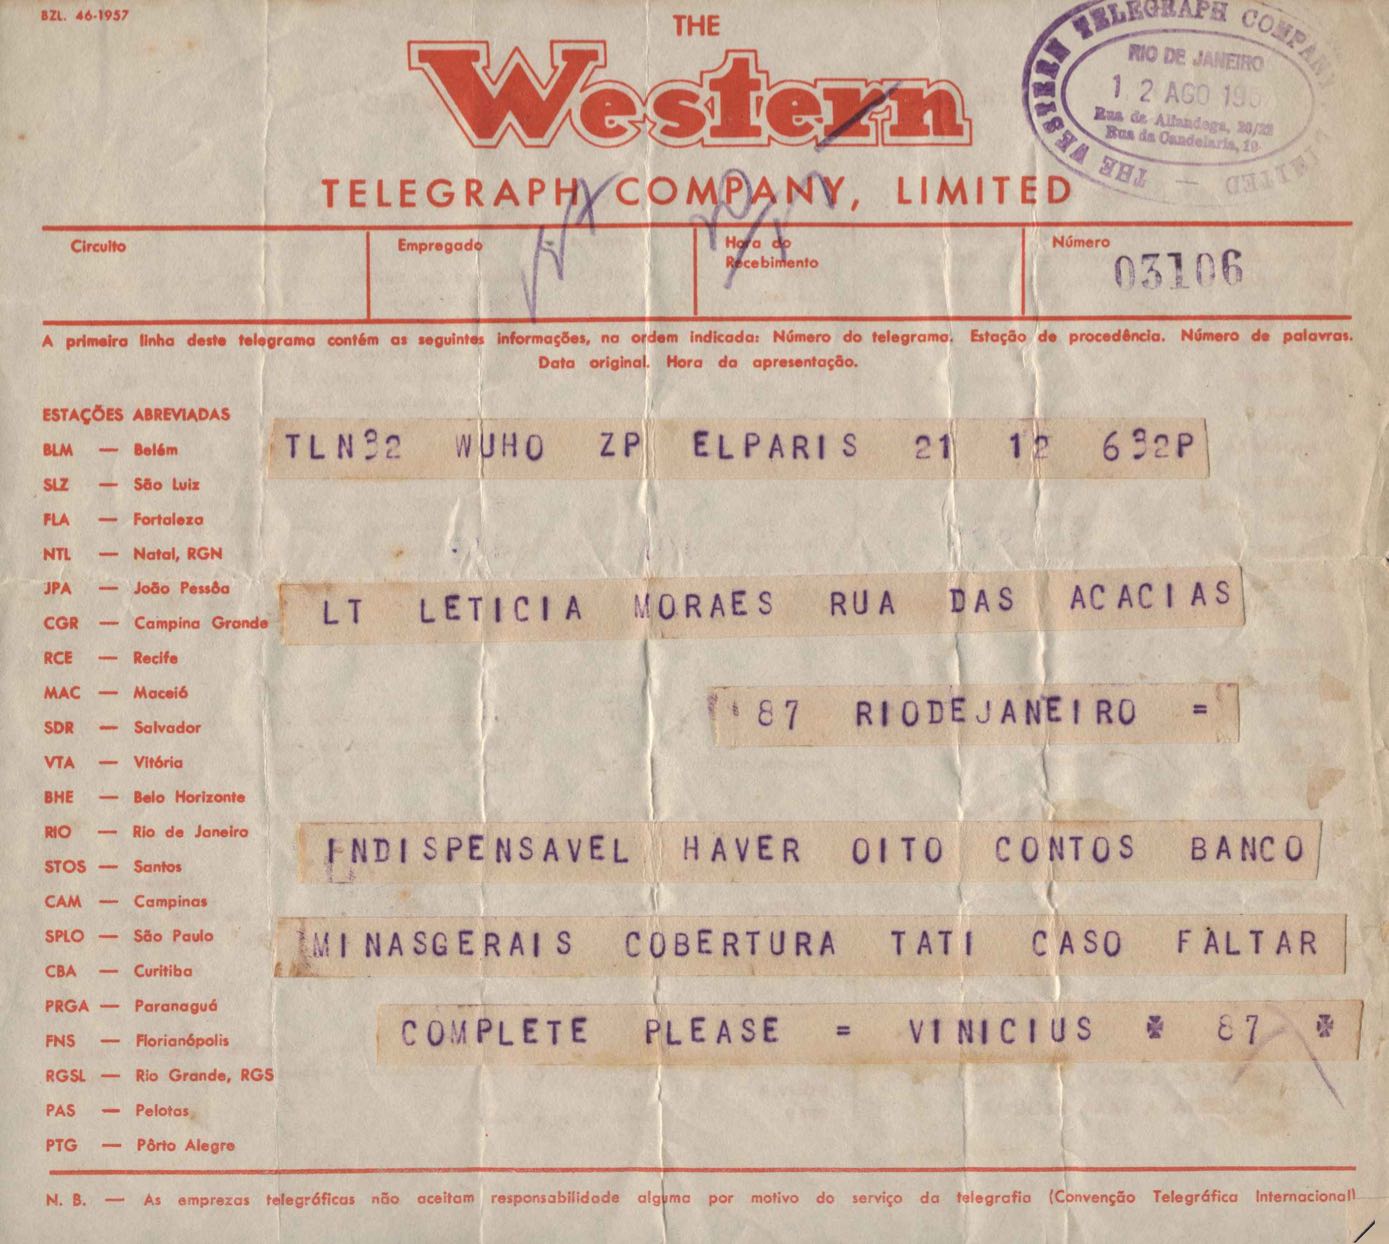 BZL. 46-1957
THE
Western
TELEGRAPH COMPANY, LIMITED
THE WESTERN TELEGRAPH COMPANY LIMITED
RIO DE JANEIRO
12 AGO 195
Rua da Alfandega, 20/22
Rua da Candelaria, 19
Circuito
Empregado
Hora do
Recebimento
Número
03106
A primeira linha deste telegrama contém as seguintes informações, na ordem indicada: Número do telegrama. Estação de procedência. Número de palavras.
Data original. Hora da apresentação.
ESTAÇÕES ABREVIADAS
BLM — Belém
SLZ — São Luiz
FLA — Fortaleza
NTL — Natal, RGN
JPA — João Pessôa
CGR — Campina Grande
RCE — Recife
MAC — Maceió
SDR — Salvador
VTA — Vitória
BHE — Belo Horizonte
RIO — Rio de Janeiro
STOS — Santos
CAM — Campinas
SPLO — São Paulo
CBA — Curitiba
PRGA — Paranaguá
FNS — Florianópolis
RGSL — Rio Grande, RGS
PAS — Pelotas
PTG — Pôrto Alegre
TLN32 WUHO ZP ELPARIS 21 12 632P
LT LETICIA MORAES RUA DAS ACACIAS
87 RIODEJANEIRO =
INDISPENSAVEL HAVER OITO CONTOS BANCO
MINASGERAIS COBERTURA TATI CASO FALTAR
COMPLETE PLEASE = VINICIUS ✠ 87 ✠
N. B. — As emprezas telegráficas não aceitam responsabilidade alguma por motivo do serviço da telegrafia (Convenção Telegráfica Internacional)